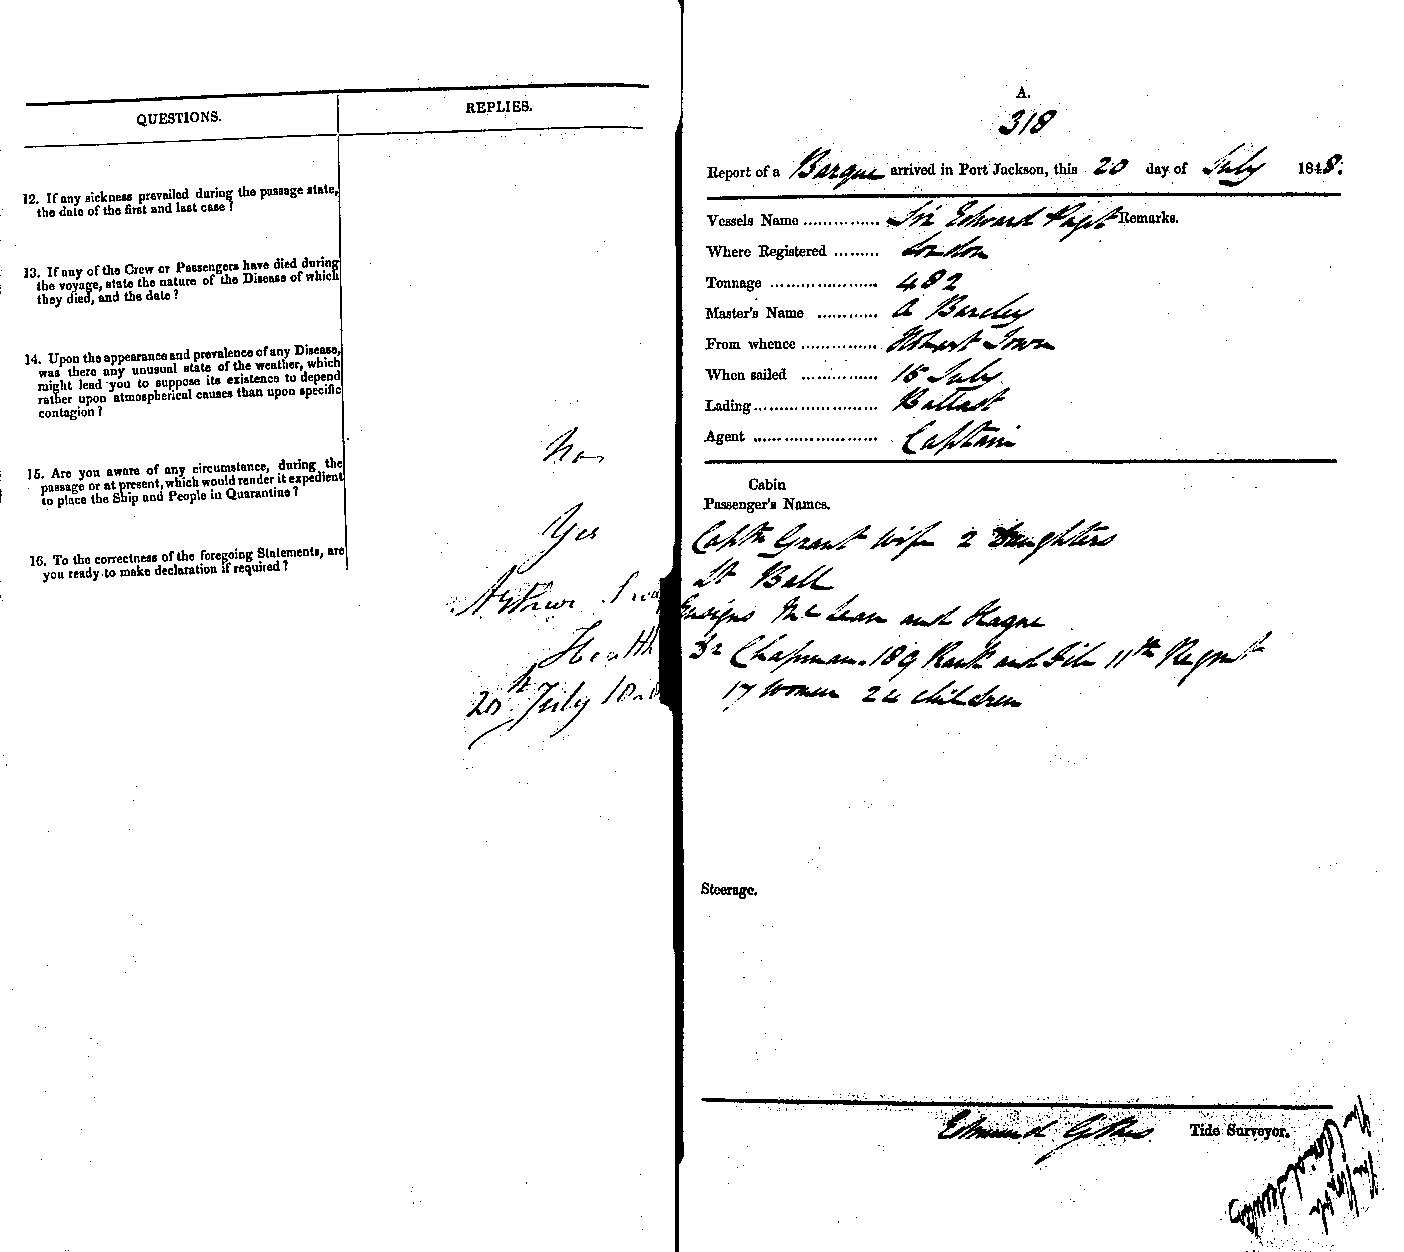 QUESTIONS.
REPLIES.
12. If any sickness prevailed during the passage state,
the date of the first and last case?
13. If any of the Crew or Passengers have died during
the voyage, state the nature of the Disease of which
they died, and the date?
14. Upon the appearance and prevalence of any Disease,
was there any unusual state of the weather, which
might lead you to suppose its existence to depend
rather upon atmospherical causes than upon specific
contagion?
No
15. Are you aware of any circumstance, during the
passage or at present, which would render it expedient
to place the Ship and People in Quarantine?
Yes
16. To the correctness of the foregoing Statements, are
you ready to make declaration if required?
Arthur
Health
20th July
A.
318
Report of a Barque arrived in Port Jackson, this 20 day of July 1848.
Vessels Name ............... Sir Edward Paget Remarks.
Where Registered ......... London
Tonnage ..................... 482
Master's Name ............ A Barclay
From whence ............... Hobart Town
When sailed ............... 15 July
Lading......................... Ballast
Agent ......................... Captain
Cabin
Passenger's Names.
Captn Grant Wife 2 Daughters
Lt Ball
Ensigns McLean and Hague
Dr Chapman. 189 Rank and File 11th Regmt
17 Women 24 children
Steerage.
Edmund Tide Surveyor.